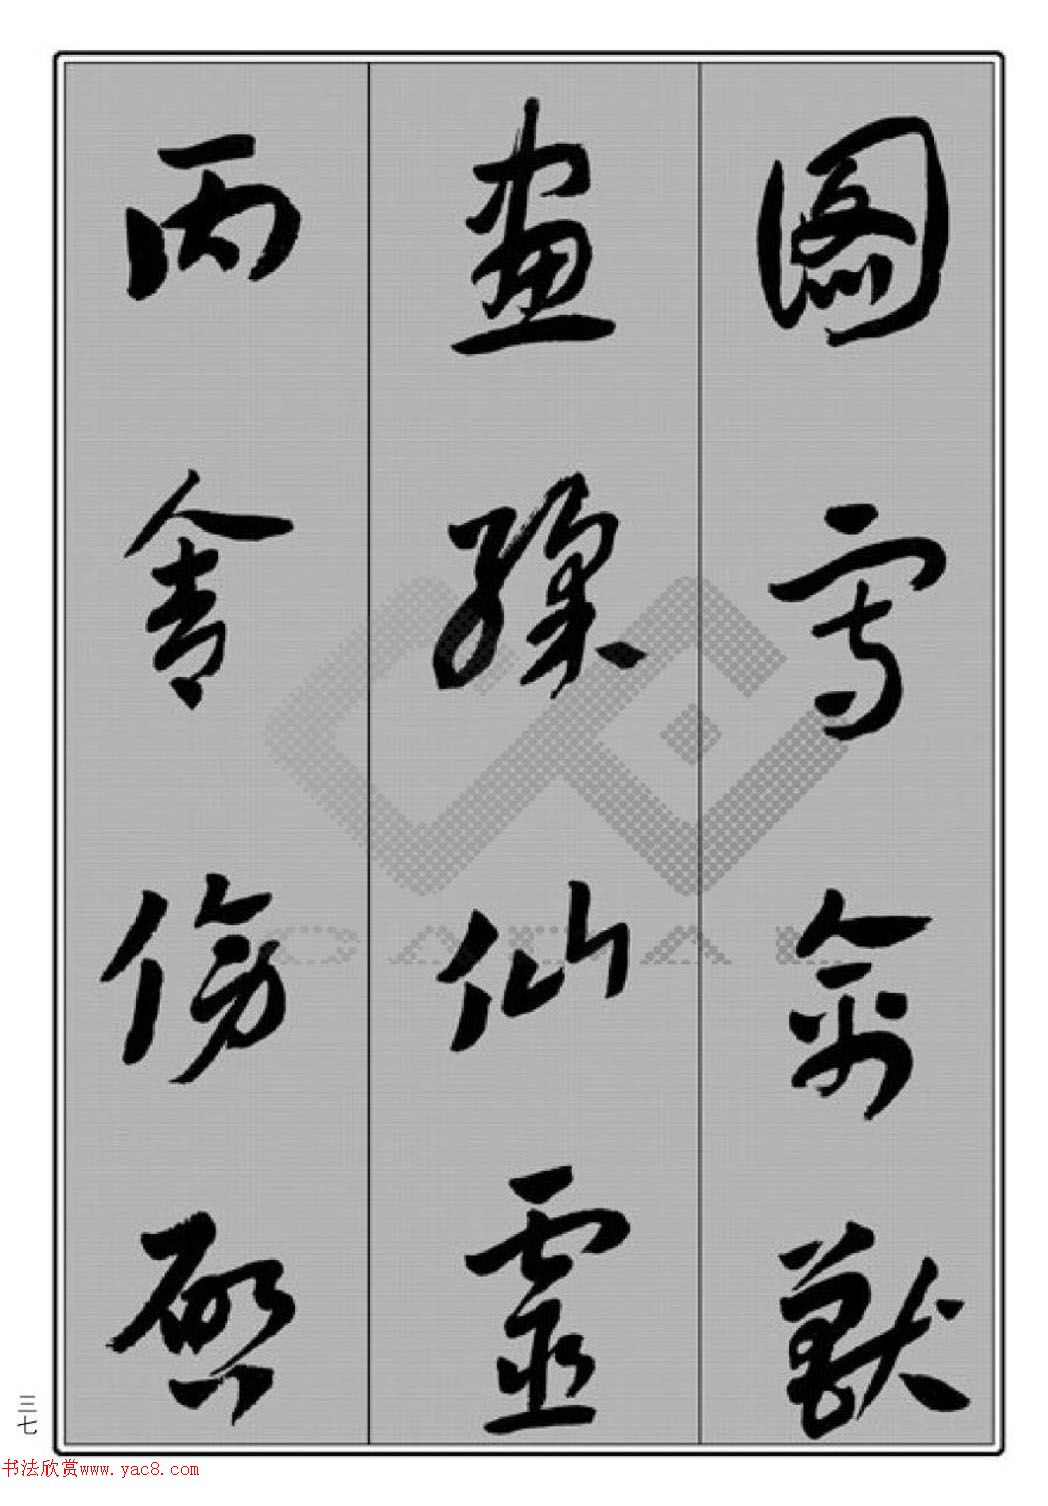 圖寫禽獸
畫綵仙靈
丙舍傍啟
三七
CADAL
书法欣赏www.yac8.com